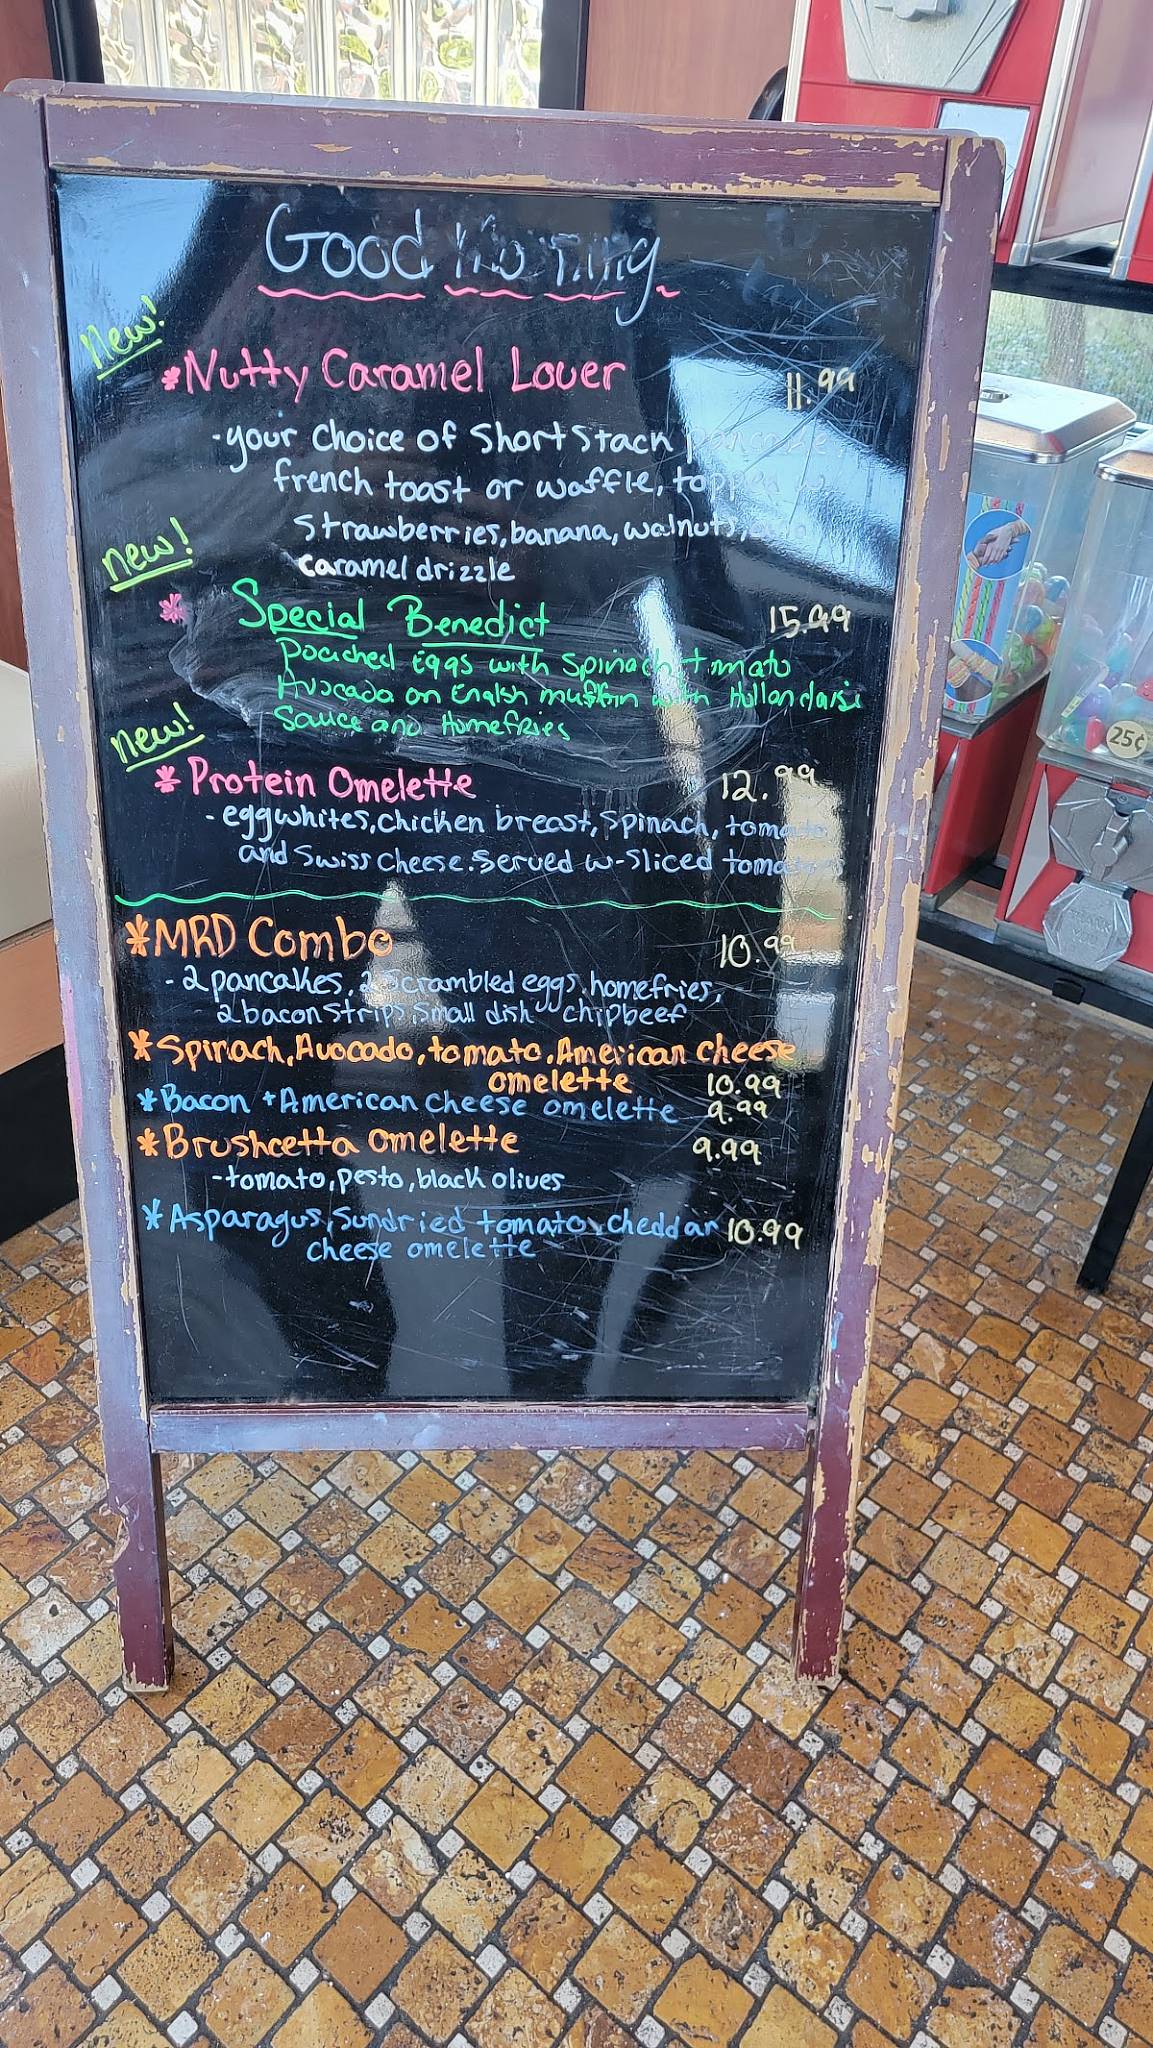 Good Morning
new!
*Nutty Caramel Lover 11.99
-your choice of Short Stack pancake,
french toast or waffle, topped w
Strawberries, banana, walnuts,
caramel drizzle
new!
* Special Benedict 15.99
Poached Eggs with Spinach tmato
Avocado on English muffin with Hollondaise
Sauce and Homefries
new!
* Protein Omelette 12.99
- eggwhites, chicken breast, spinach, tomato
and Swiss cheese. Served w-sliced tomatoes
*MRD Combo 10.99
-2 pancakes, 2 scrambled eggs, homefries,
2 bacon strips, small dish chipbeef
*Spinach, Avocado, tomato, American cheese
omelette 10.99
*Bacon + American cheese omelette 9.99
*Brushcetta omelette 9.99
-tomato, pesto, black olives
*Asparagus, Sundried tomato, cheddar 10.99
cheese omelette
25¢